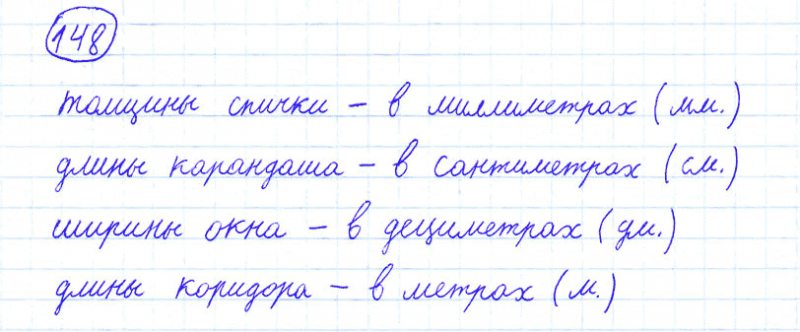 148
толщины спички – в миллиметрах (мм.)
длины карандаша – в сантиметрах (см.)
ширины окна – в дециметрах (дм.)
длины коридора – в метрах (м.)